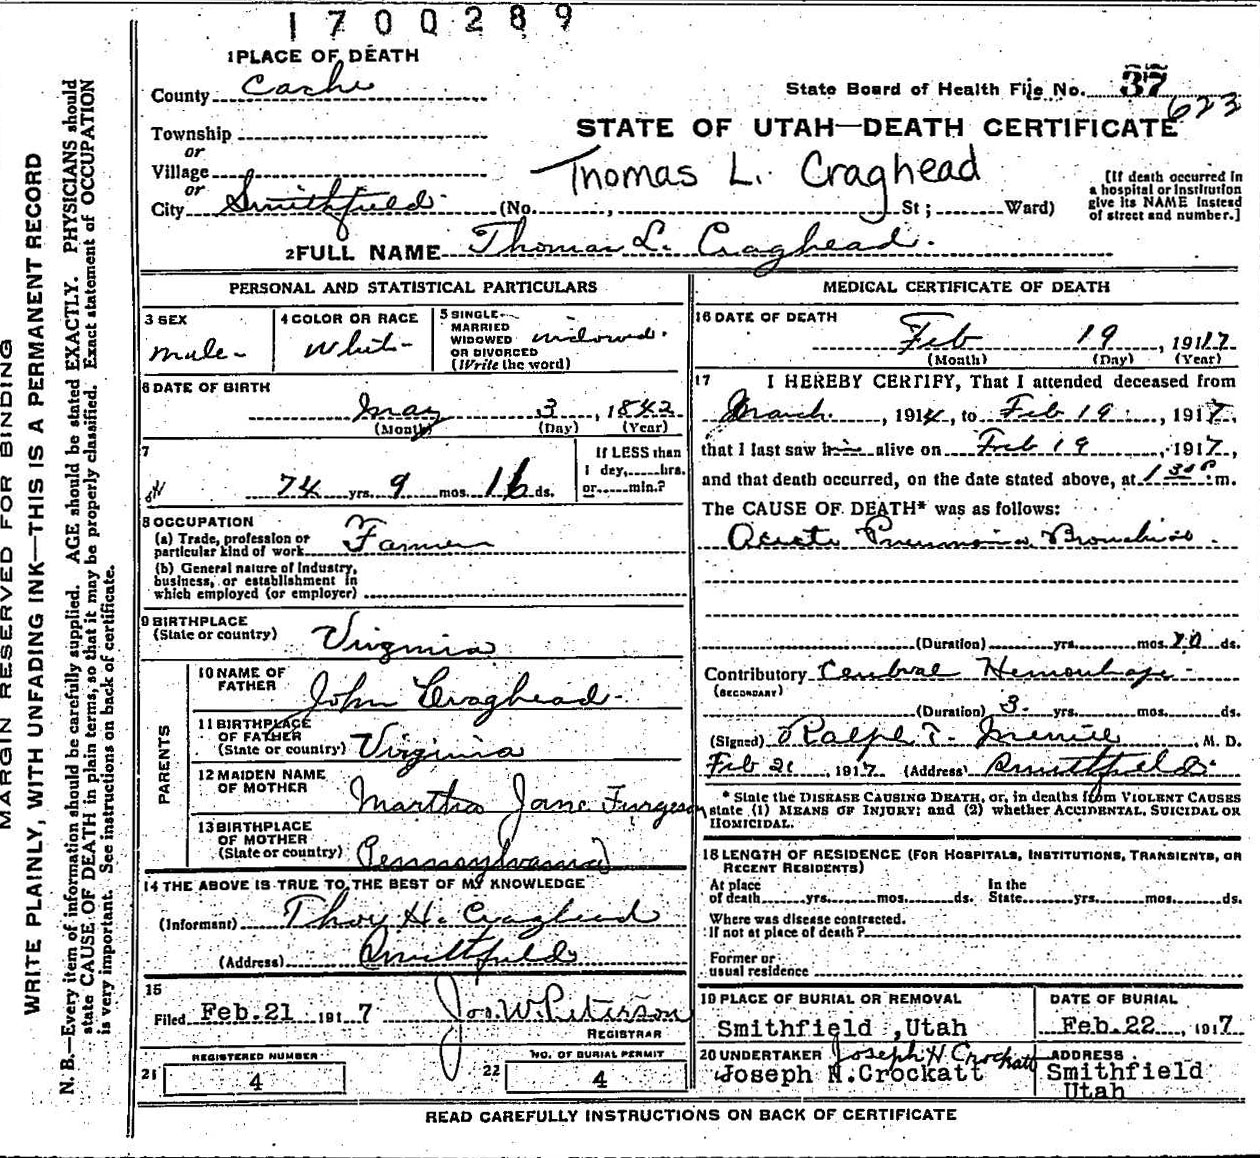 1700289
1 PLACE OF DEATH
County Cache
State Board of Health File No. 37
623
Township
or
STATE OF UTAH—DEATH CERTIFICATE
Village
or
Thomas L. Craghead
City Smithfield (No. , St ; Ward)
[If death occurred in
a hospital or institution
give its NAME instead
of street and number.]
2 FULL NAME Thomas L. Craghead.
PERSONAL AND STATISTICAL PARTICULARS
3 SEX
male
4 COLOR OR RACE
White
5 SINGLE
MARRIED
WIDOWED
OR DIVORCED
(Write the word)
widowed.
6 DATE OF BIRTH
May 3, 1842
(Month) (Day) (Year)
7
74 yrs. 9 mos. 16 ds.
If LESS than
1 dey, hrs.
or min.?
8 OCCUPATION
(a) Trade, profession or
particular kind of work Farmer
(b) General nature of Industry,
business, or establishment in
which employed (or employer)
9 BIRTHPLACE
(State or country) Virginia
PARENTS
10 NAME OF
FATHER John Craghead
11 BIRTHPLACE
OF FATHER
(State or country) Virginia
12 MAIDEN NAME
OF MOTHER Martha Jane Furgeson
13 BIRTHPLACE
OF MOTHER
(State or country) Pennsylvania
14 THE ABOVE IS TRUE TO THE BEST OF MY KNOWLEDGE
(Informant) H. Craghead
(Address) Smithfield
15
Filed Feb.21 191 7 Jos. W. Peterson
REGISTRAR
21 REGISTERED NUMBER
4
22 NO. OF BURIAL PERMIT
4
MEDICAL CERTIFICATE OF DEATH
16 DATE OF DEATH
Feb 19, 1917
(Month) (Day) (Year)
17 I HEREBY CERTIFY, That I attended deceased from
March, 1914, to Feb 19, 1917,
that I last saw him alive on Feb 19, 1917,
and that death occurred, on the date stated above, at 1 30 P m.
The CAUSE OF DEATH* was as follows:
Acute Pneumonia
(Duration) yrs. mos. 10 ds.
Contributory Cerebral Hemorrhage
(SECONDARY)
(Duration) 3 yrs. mos. ds.
(Signed) Ralph T. Merrill, M. D.
Feb 21, 1917 (Address) Smithfield
* State the DISEASE CAUSING DEATH, or, in deaths from VIOLENT CAUSES
state (1) MEANS OF INJURY; and (2) whether ACCIDENTAL, SUICIDAL OR
HOMICIDAL.
18 LENGTH OF RESIDENCE (FOR HOSPITALS, INSTITUTIONS, TRANSIENTS, OR
RECENT RESIDENTS)
At place In the
of death yrs. mos. ds. State yrs. mos. ds.
Where was disease contracted.
If not at place of death?
Former or
usual residence
19 PLACE OF BURIAL OR REMOVAL
Smithfield ,Utah
DATE OF BURIAL
Feb.22, 1917
20 UNDERTAKER Joseph H Crockatt
Joseph N.Crockatt
ADDRESS
Smithfield
Utah
READ CAREFULLY INSTRUCTIONS ON BACK OF CERTIFICATE
MARGIN RESERVED FOR BINDING
WRITE PLAINLY, WITH UNFADING INK—THIS IS A PERMANENT RECORD
N. B.—Every item of information should be carefully supplied. AGE should be stated EXACTLY. PHYSICIANS should
state CAUSE OF DEATH in plain terms, so that it may be properly classified. Exact statement of OCCUPATION
is very important. See instructions on back of certificate.